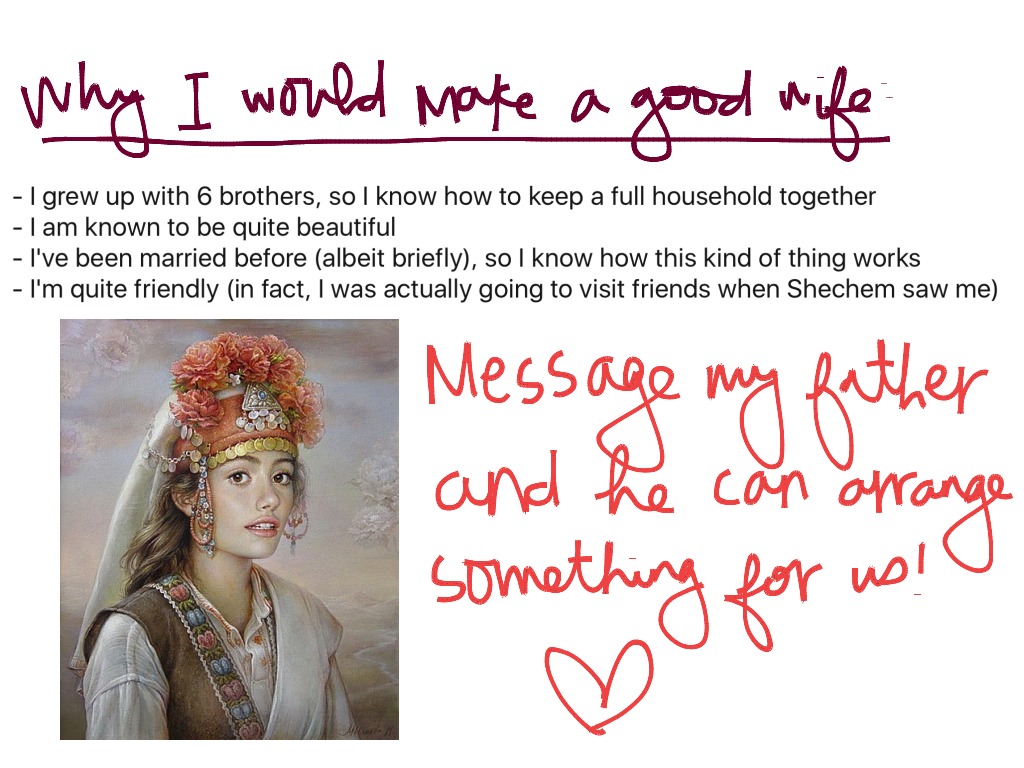 Why I would make a good wife
- I grew up with 6 brothers, so I know how to keep a full household together
- I am known to be quite beautiful
- I've been married before (albeit briefly), so I know how this kind of thing works
- I'm quite friendly (in fact, I was actually going to visit friends when Shechem saw me)
Message my father
and he can arrange
something for us!